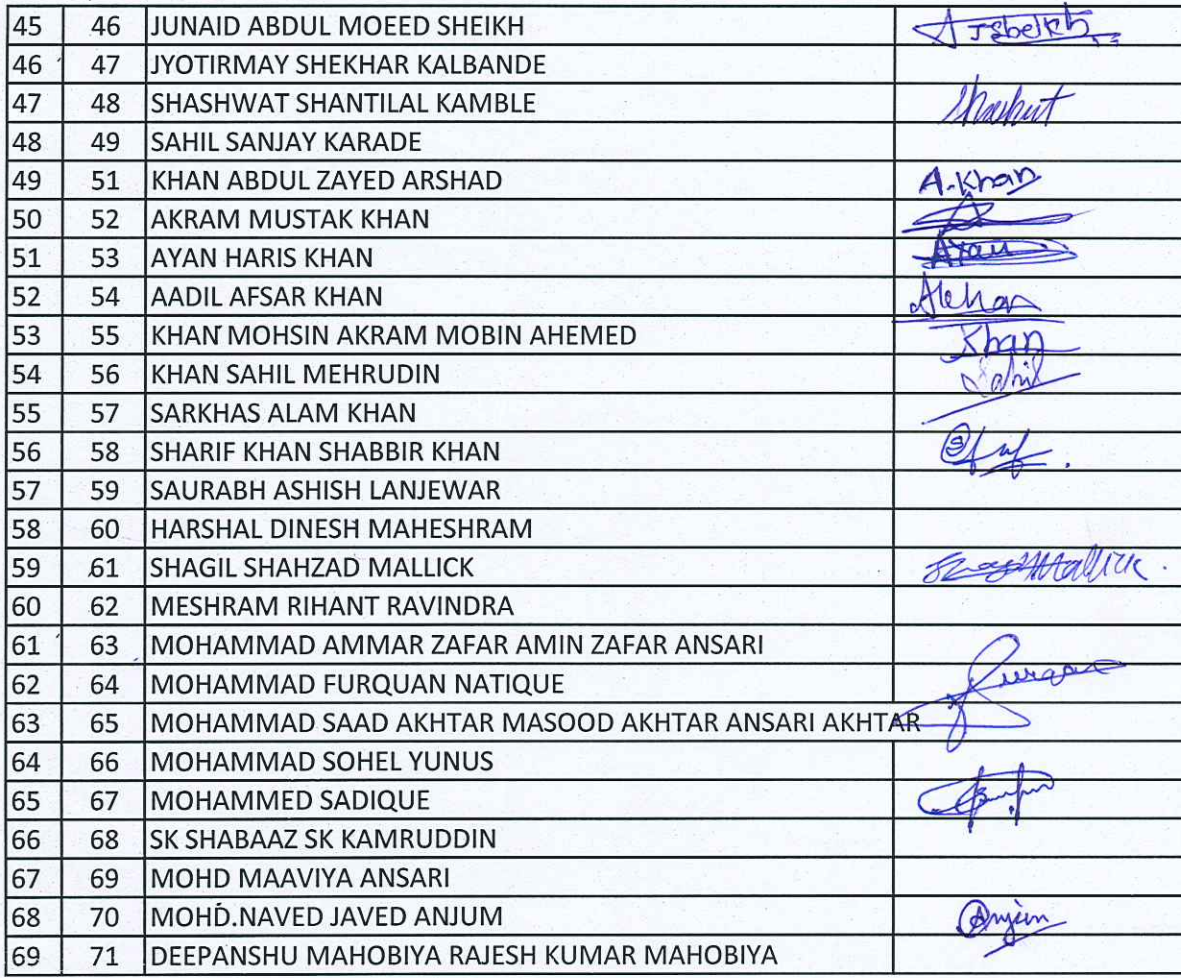 45 46 JUNAID ABDUL MOEED SHEIKH
46 47 JYOTIRMAY SHEKHAR KALBANDE
47 48 SHASHWAT SHANTILAL KAMBLE
48 49 SAHIL SANJAY KARADE
49 51 KHAN ABDUL ZAYED ARSHAD A.Khan
50 52 AKRAM MUSTAK KHAN
51 53 AYAN HARIS KHAN Ayan
52 54 AADIL AFSAR KHAN
53 55 KHAN MOHSIN AKRAM MOBIN AHEMED Khan
54 56 KHAN SAHIL MEHRUDIN Sahil
55 57 SARKHAS ALAM KHAN
56 58 SHARIF KHAN SHABBIR KHAN
57 59 SAURABH ASHISH LANJEWAR
58 60 HARSHAL DINESH MAHESHRAM
59 61 SHAGIL SHAHZAD MALLICK Mallick
60 62 MESHRAM RIHANT RAVINDRA
61 63 MOHAMMAD AMMAR ZAFAR AMIN ZAFAR ANSARI
62 64 MOHAMMAD FURQUAN NATIQUE
63 65 MOHAMMAD SAAD AKHTAR MASOOD AKHTAR ANSARI AKHTAR
64 66 MOHAMMAD SOHEL YUNUS
65 67 MOHAMMED SADIQUE
66 68 SK SHABAAZ SK KAMRUDDIN
67 69 MOHD MAAVIYA ANSARI
68 70 MOHD.NAVED JAVED ANJUM Anjum
69 71 DEEPANSHU MAHOBIYA RAJESH KUMAR MAHOBIYA